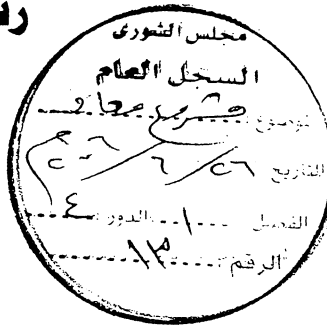 مجلس الشورى
السجل العام
موضوع: مشروع معاد
التاريخ ٢٦/٦/٢٠٠٦م
الفصل ١ الدور: ٤
الرقم: ١٣